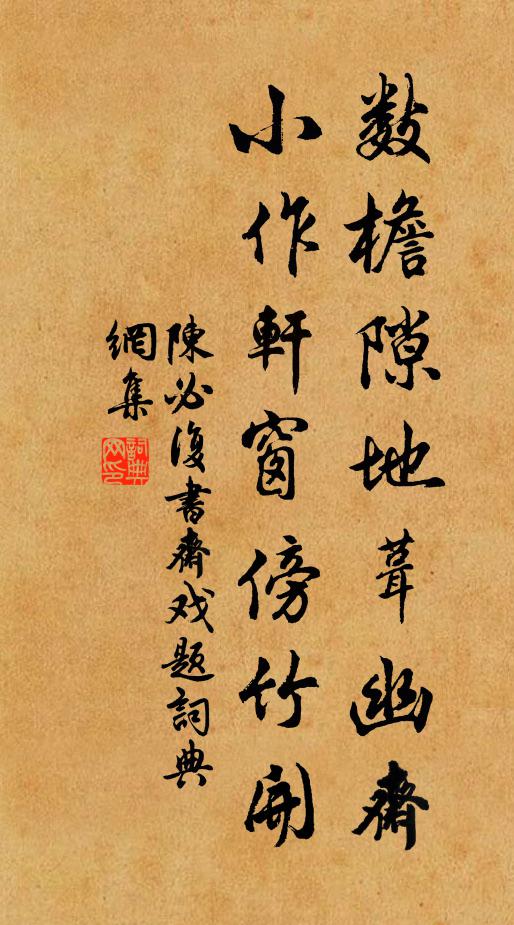 數檐隙地葺幽齋
小作軒窗傍竹開
陳必復書齋戏題詞典
網集
詞典
网印